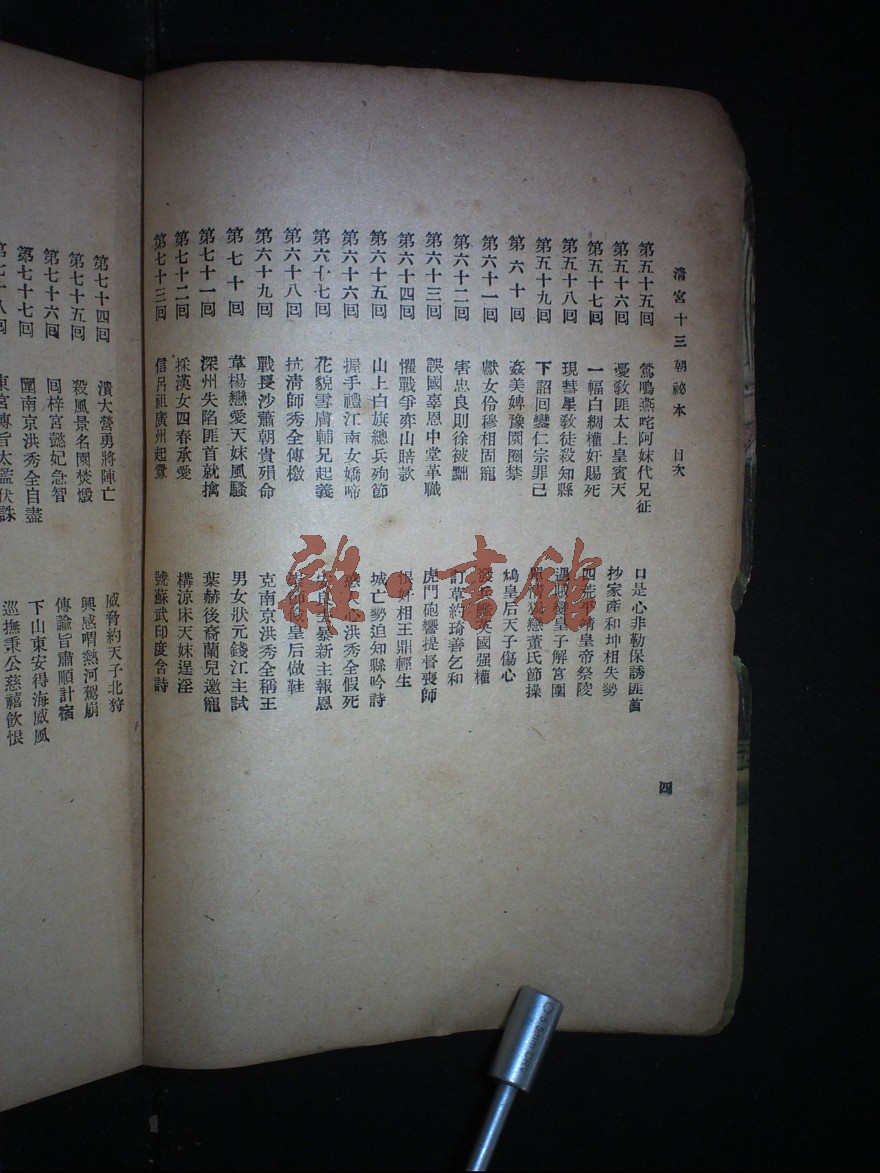 清宮十三朝祕本 目次
第五十五回 鶯鳴燕咤阿妹代兄征 口是心非勒保誘匪首
第五十六回 憂敎匪太上皇賓天 抄家產和坤相失勢
第五十七回 一幅白綢權奸賜死 四荒不靖皇帝祭陵
第五十八回 現彗星敎徒殺知縣 遇 皇子解宮圍
第五十九回 下詔回鑾仁宗罪己 戀董氏節操
第六十回 姦美婢豫園圈禁 鴆皇后天子傷心
第六十一回 獻女伶穆相固寵 英國强權
第六十二回 害忠良則徐被黜 訂草約琦善乞和
第六十三回 誤國辜恩中堂革職 虎門砲響提督喪師
第六十四回 懼戰爭弈山賠款 恨奸相王鼎輕生
第六十五回 山上白旗總兵殉節 城亡勢迫知縣吟詩
第六十六回 握手禮江南女嬌啼 洪秀全假死
第六十七回 花貌雪膚輔兄起義 安良去暴新主報恩
第六十八回 抗淸師秀全傳檄 皇后做鞋
第六十九回 戰長沙蕭朝貴殞命 克南京洪秀全稱王
第七十回 韋楊戀愛天妹風騷 男女狀元錢江主試
第七十一回 深州失陷匪首就擒 葉赫後裔蘭兒邀寵
第七十二回 採漢女四春承愛 構涼床天妹逞淫
第七十三回 信呂祖廣州起釁 號蘇武印度含詩
四
第七十四回 潰大營勇將陣亡 威脅約天子北狩
第七十五回 殺風景名園焚燬 興感喟熱河駕崩
第七十六回 回梓宮懿妃急智 傳諭旨肅順計宿
第七十七回 圍南京洪秀全自盡 下山東安得海威風
第七十八回 東宮傳旨太監伏誅 巡撫秉公慈禧飲恨
雜·書館